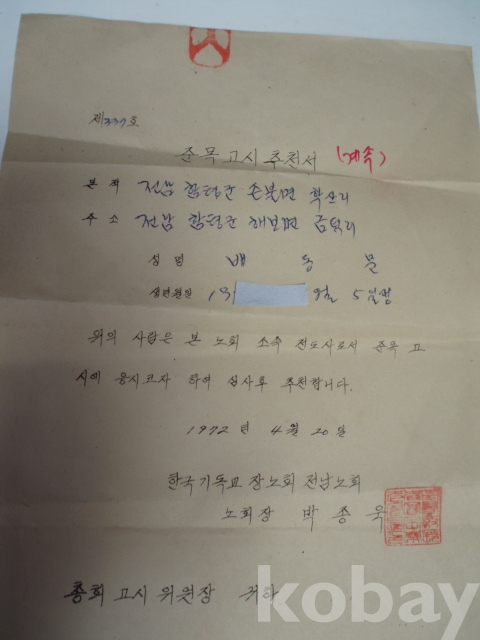 제337호
준목고시추천서 (계속)
본적 전남 함평군 손불면 학산리
주소 전남 함평군 해보면 금덕리
성명 배 동 문
생년월일 19 9월 5일생
위의 사람은 본 노회 소속 전도사로서 준목 고
시에 응시코자 하여 심사후 추천합니다.
1972년 4월 20일
한국기독교 장노회 전남노회
노회장 박종욱
총회 고시 위원장 귀하
kobay